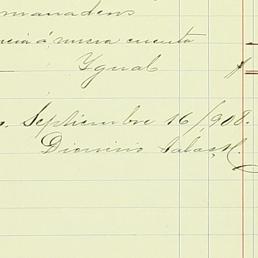 manadens
á nueva cuenta
Ygual
Septiembre 16/908.
Dionisio Salas